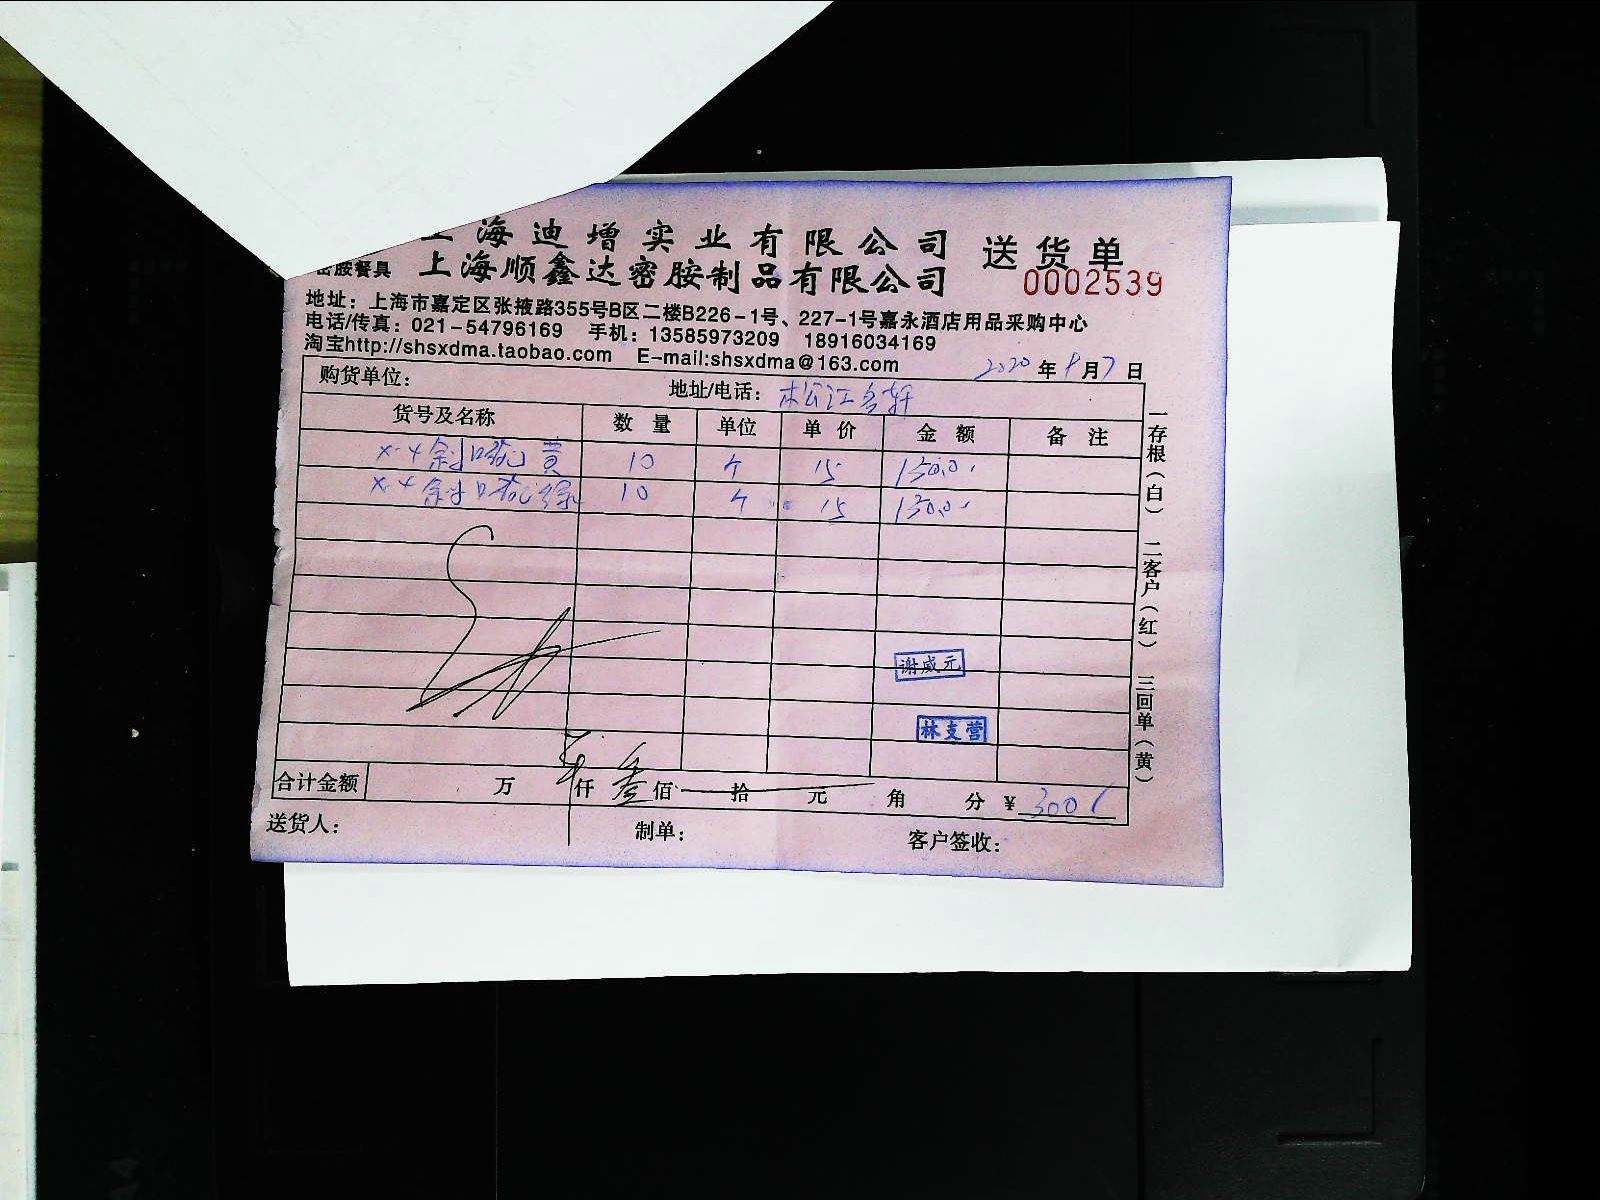 上海迪增实业有限公司 送货单
密胺餐具 上海顺鑫达密胺制品有限公司 0002539
地址：上海市嘉定区张掖路355号B区二楼B226-1号、227-1号嘉永酒店用品采购中心
电话/传真：021-54796169 手机：13585973209 18916034169
淘宝http://shsxdma.taobao.com E-mail:shsxdma@163.com
2020年9月7日
购货单位： 地址/电话：松江名轩
货号及名称 数量 单位 单价 金额 备注
X-4斜口碗 黄 10 个 15 150.0
X-4斜口碗 绿 10 个 15 150.0
谢威元
林支营
合计金额 万 仟 叁佰 拾 元 角 分 ¥ 300
送货人： 制单： 客户签收：
一存根（白） 二客户（红） 三回单（黄）